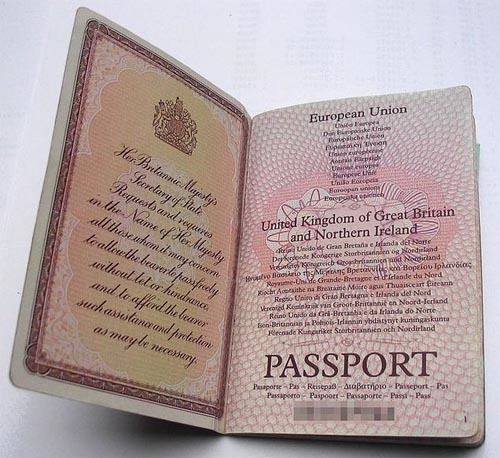 Her Britannic Majesty's
Secretary of State
Requests and requires
in the Name of Her Majesty
all those whom it may concern
to allow the bearer to pass freely
without let or hindrance,
and to afford the bearer
such assistance and protection
as may be necessary.
European Union
Unión Europea
Den Europæiske Union
Europäische Union
Ευρωπαϊκή Ένωση
Union européenne
Aontas Eorpach
Unione europea
Europese Unie
União Europeia
Euroopan unioni
Europeiska unionen
United Kingdom of Great Britain
and Northern Ireland
Reino Unido de Gran Bretaña e Irlanda del Norte
Det Forenede Kongerige Storbritannien og Nordirland
Vereinigtes Königreich Großbritannien und Nordirland
Ηνωμένο Βασίλειο της Μεγάλης Βρετανίας και Βορείου Ιρλανδίας
Royaume-Uni de Grande-Bretagne et d'Irlande du Nord
Ríocht Aontaithe na Breataine Móire agus Thuaisceart Éireann
Regno Unito di Gran Bretagna e Irlanda del Nord
Verenigd Koninkrijk van Groot-Brittannië en Noord-Ierland
Reino Unido da Grã-Bretanha e da Irlanda do Norte
Ison-Britannian ja Pohjois-Irlannin yhdistynyt kuningaskunta
Förenade Kungariket Storbritannien och Nordirland
PASSPORT
Pasaporte – Pas – Reisepaß – Διαβατήριο – Passeport – Pas
Passaporto – Paspoort – Passaporte – Passi – Pass
1